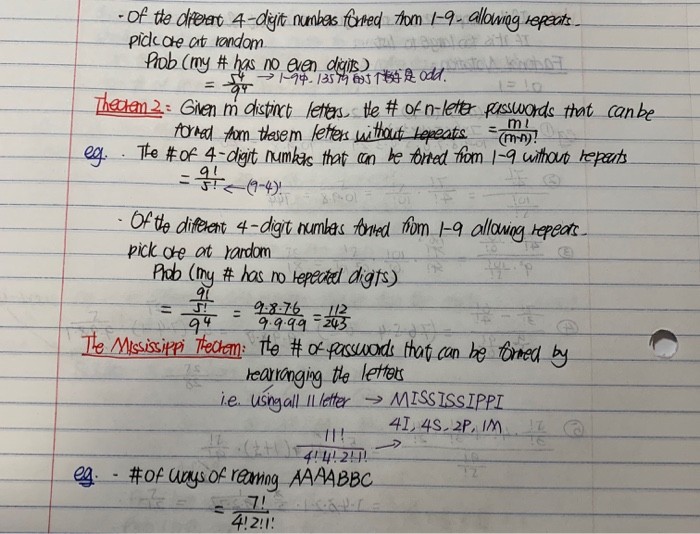 · Of the different 4-digit numbers formed from 1-9. allowing repeats.
pick one at random
Prob (my # has no even digits)
= 5⁴/9⁴ → 1-9中. 13579 的5个数字是 odd.
Theorem 2: Given m distinct letters. the # of n-letter passwords that can be
formed from these m letters without repeats = m!/(m-n)!
eg. · The # of 4-digit numbers that can be formed from 1-9 without repeats
= 9!/5! ← (9-4)!
· Of the different 4-digit numbers formed from 1-9 allowing repeats.
pick one at random
Prob (my # has no repeated digits)
= (9!/5!)/9⁴ = 9·8·7·6/9·9·9·9 = 112/243
The Mississippi Theorem: The # of passwords that can be formed by
rearranging the letters
i.e. using all 11 letter → MISSISSIPPI
11!/4!4!2!1! → 4I, 4S, 2P, 1M
eg. · # of ways of reaming AAAABBC
= 7!/4!2!1!